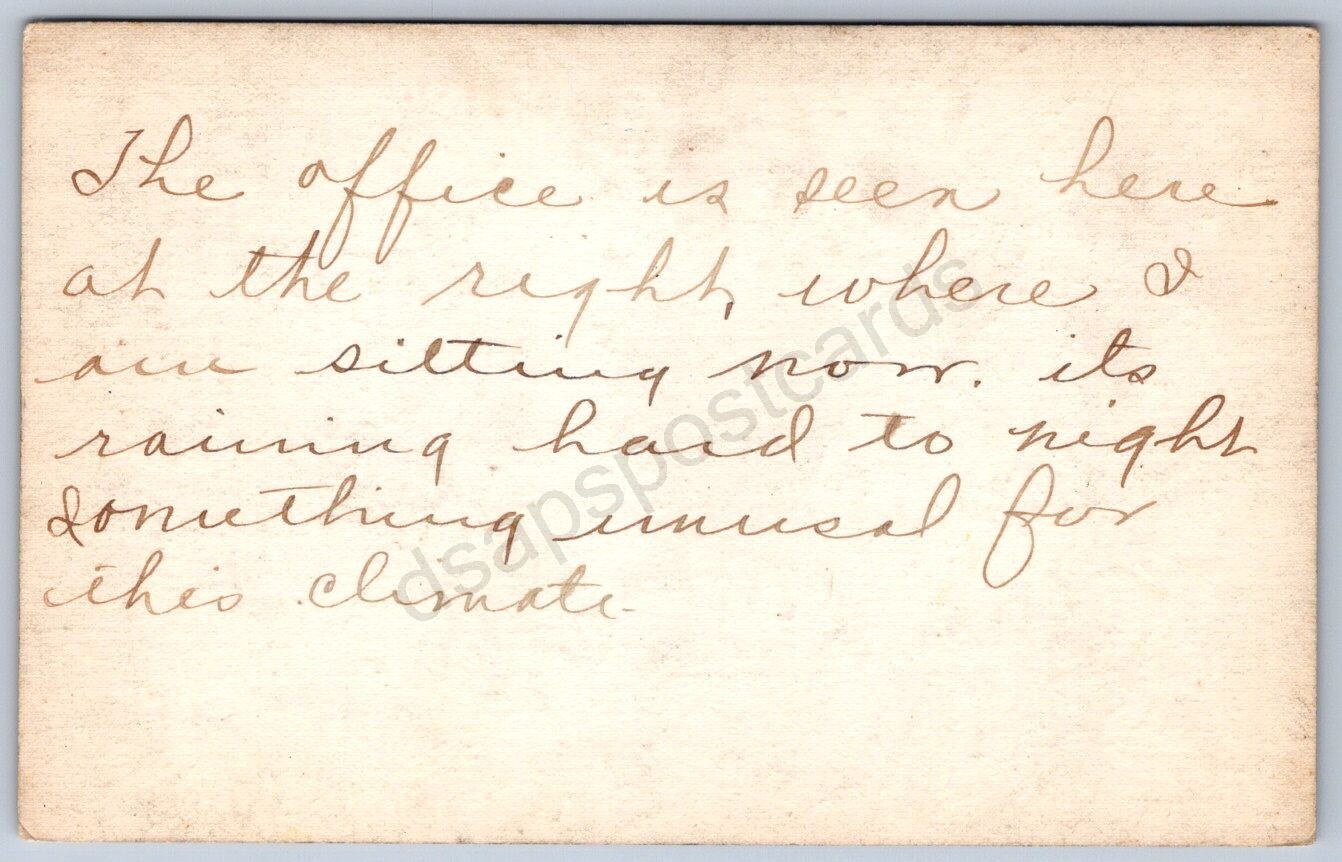 The office is seen here
at the right, where I
am sitting now. its
raining hard to night
something unusal for
this climate.
dsapspostcards